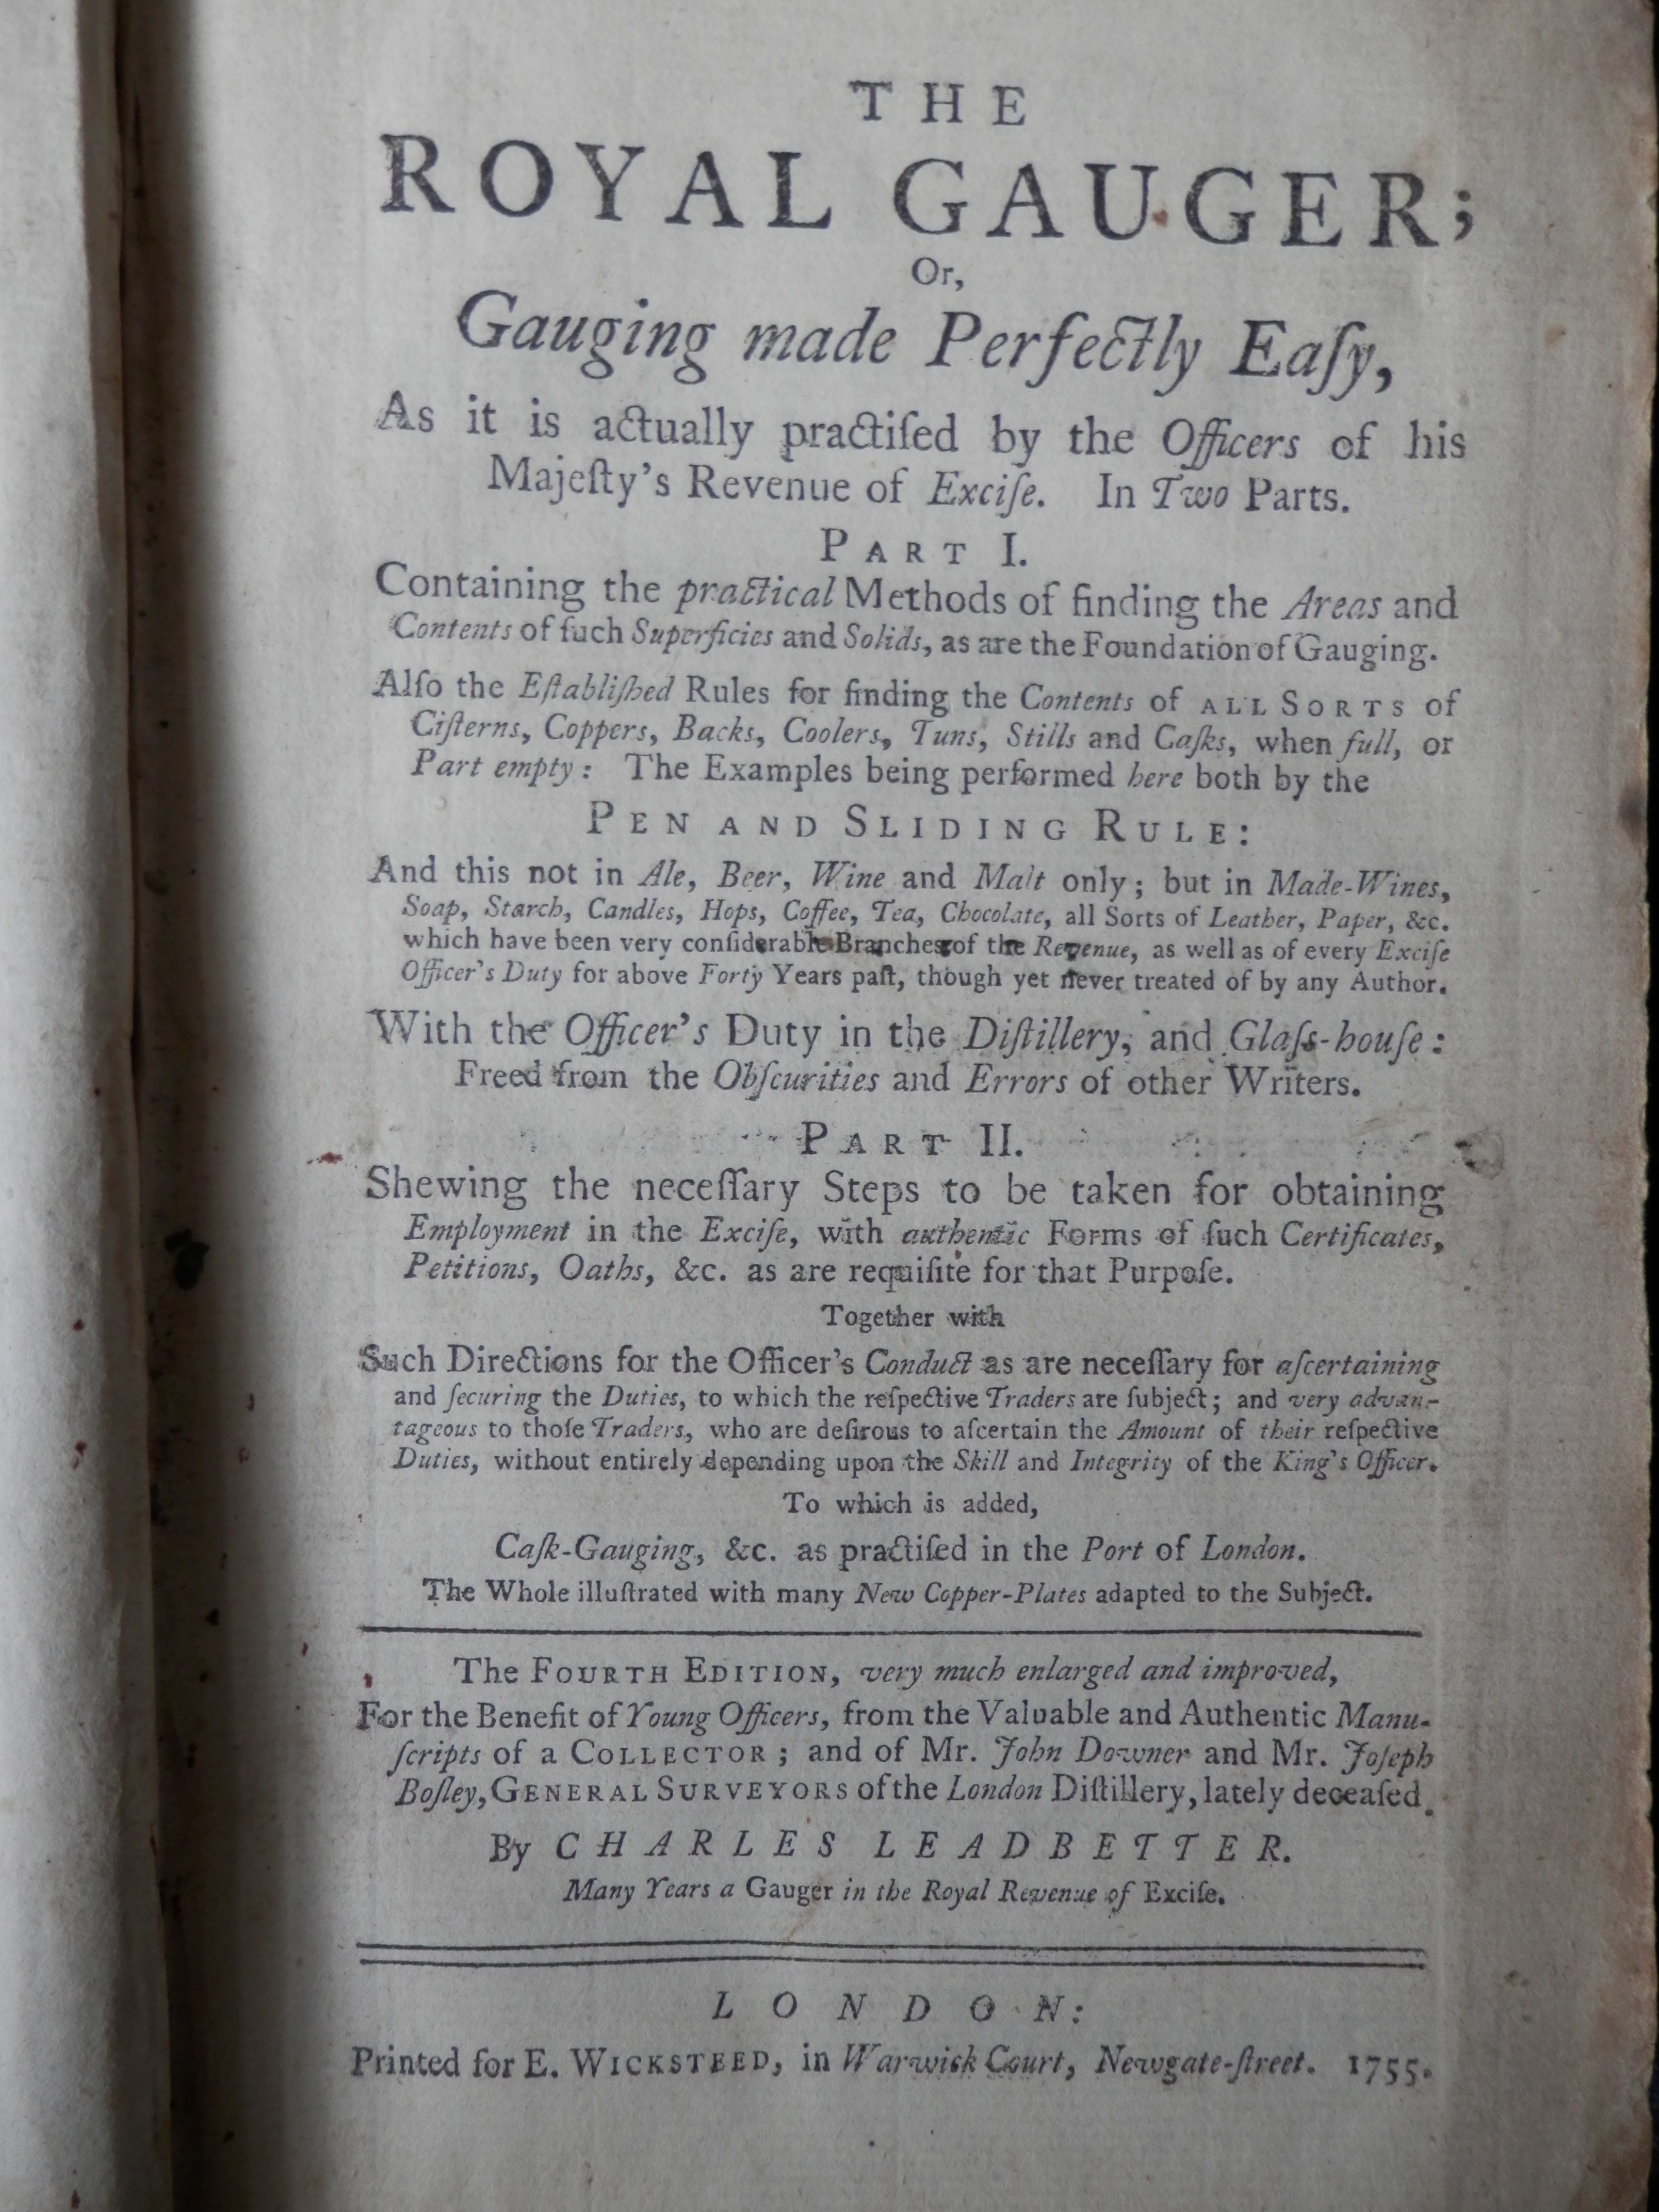 THE
ROYAL GAUGER;
Or,
Gauging made Perfectly Eaſy,
As it is actually practiſed by the Officers of his
Majeſty's Revenue of Exciſe. In Two Parts.
PART I.
Containing the practical Methods of finding the Areas and
Contents of ſuch Superficies and Solids, as are the Foundation of Gauging.
Alſo the Eſtabliſhed Rules for finding the Contents of ALL SORTS of
Ciſterns, Coppers, Backs, Coolers, Tuns, Stills and Caſks, when full, or
Part empty: The Examples being performed here both by the
PEN AND SLIDING RULE:
And this not in Ale, Beer, Wine and Malt only; but in Made-Wines,
Soap, Starch, Candles, Hops, Coffee, Tea, Chocolate, all Sorts of Leather, Paper, &c.
which have been very conſiderable Branches of the Revenue, as well as of every Exciſe
Officer's Duty for above Forty Years paſt, though yet never treated of by any Author.
With the Officer's Duty in the Diſtillery, and Glaſs-houſe:
Freed from the Obſcurities and Errors of other Writers.
PART II.
Shewing the neceſſary Steps to be taken for obtaining
Employment in the Exciſe, with authentic Forms of ſuch Certificates,
Petitions, Oaths, &c. as are requiſite for that Purpoſe.
Together with
Such Directions for the Officer's Conduct as are neceſſary for aſcertaining
and ſecuring the Duties, to which the reſpective Traders are ſubject; and very advan-
tageous to thoſe Traders, who are deſirous to aſcertain the Amount of their reſpective
Duties, without entirely depending upon the Skill and Integrity of the King's Officer.
To which is added,
Caſk-Gauging, &c. as practiſed in the Port of London.
The Whole illuſtrated with many New Copper-Plates adapted to the Subject.
The FOURTH EDITION, very much enlarged and improved,
For the Benefit of Young Officers, from the Valuable and Authentic Manu-
ſcripts of a COLLECTOR; and of Mr. John Downer and Mr. Joſeph
Boſley, GENERAL SURVEYORS of the London Diſtillery, lately deceaſed.
By CHARLES LEADBETTER.
Many Years a Gauger in the Royal Revenue of Exciſe.
LONDON:
Printed for E. WICKSTEED, in Warwick Court, Newgate-ſtreet. 1755.